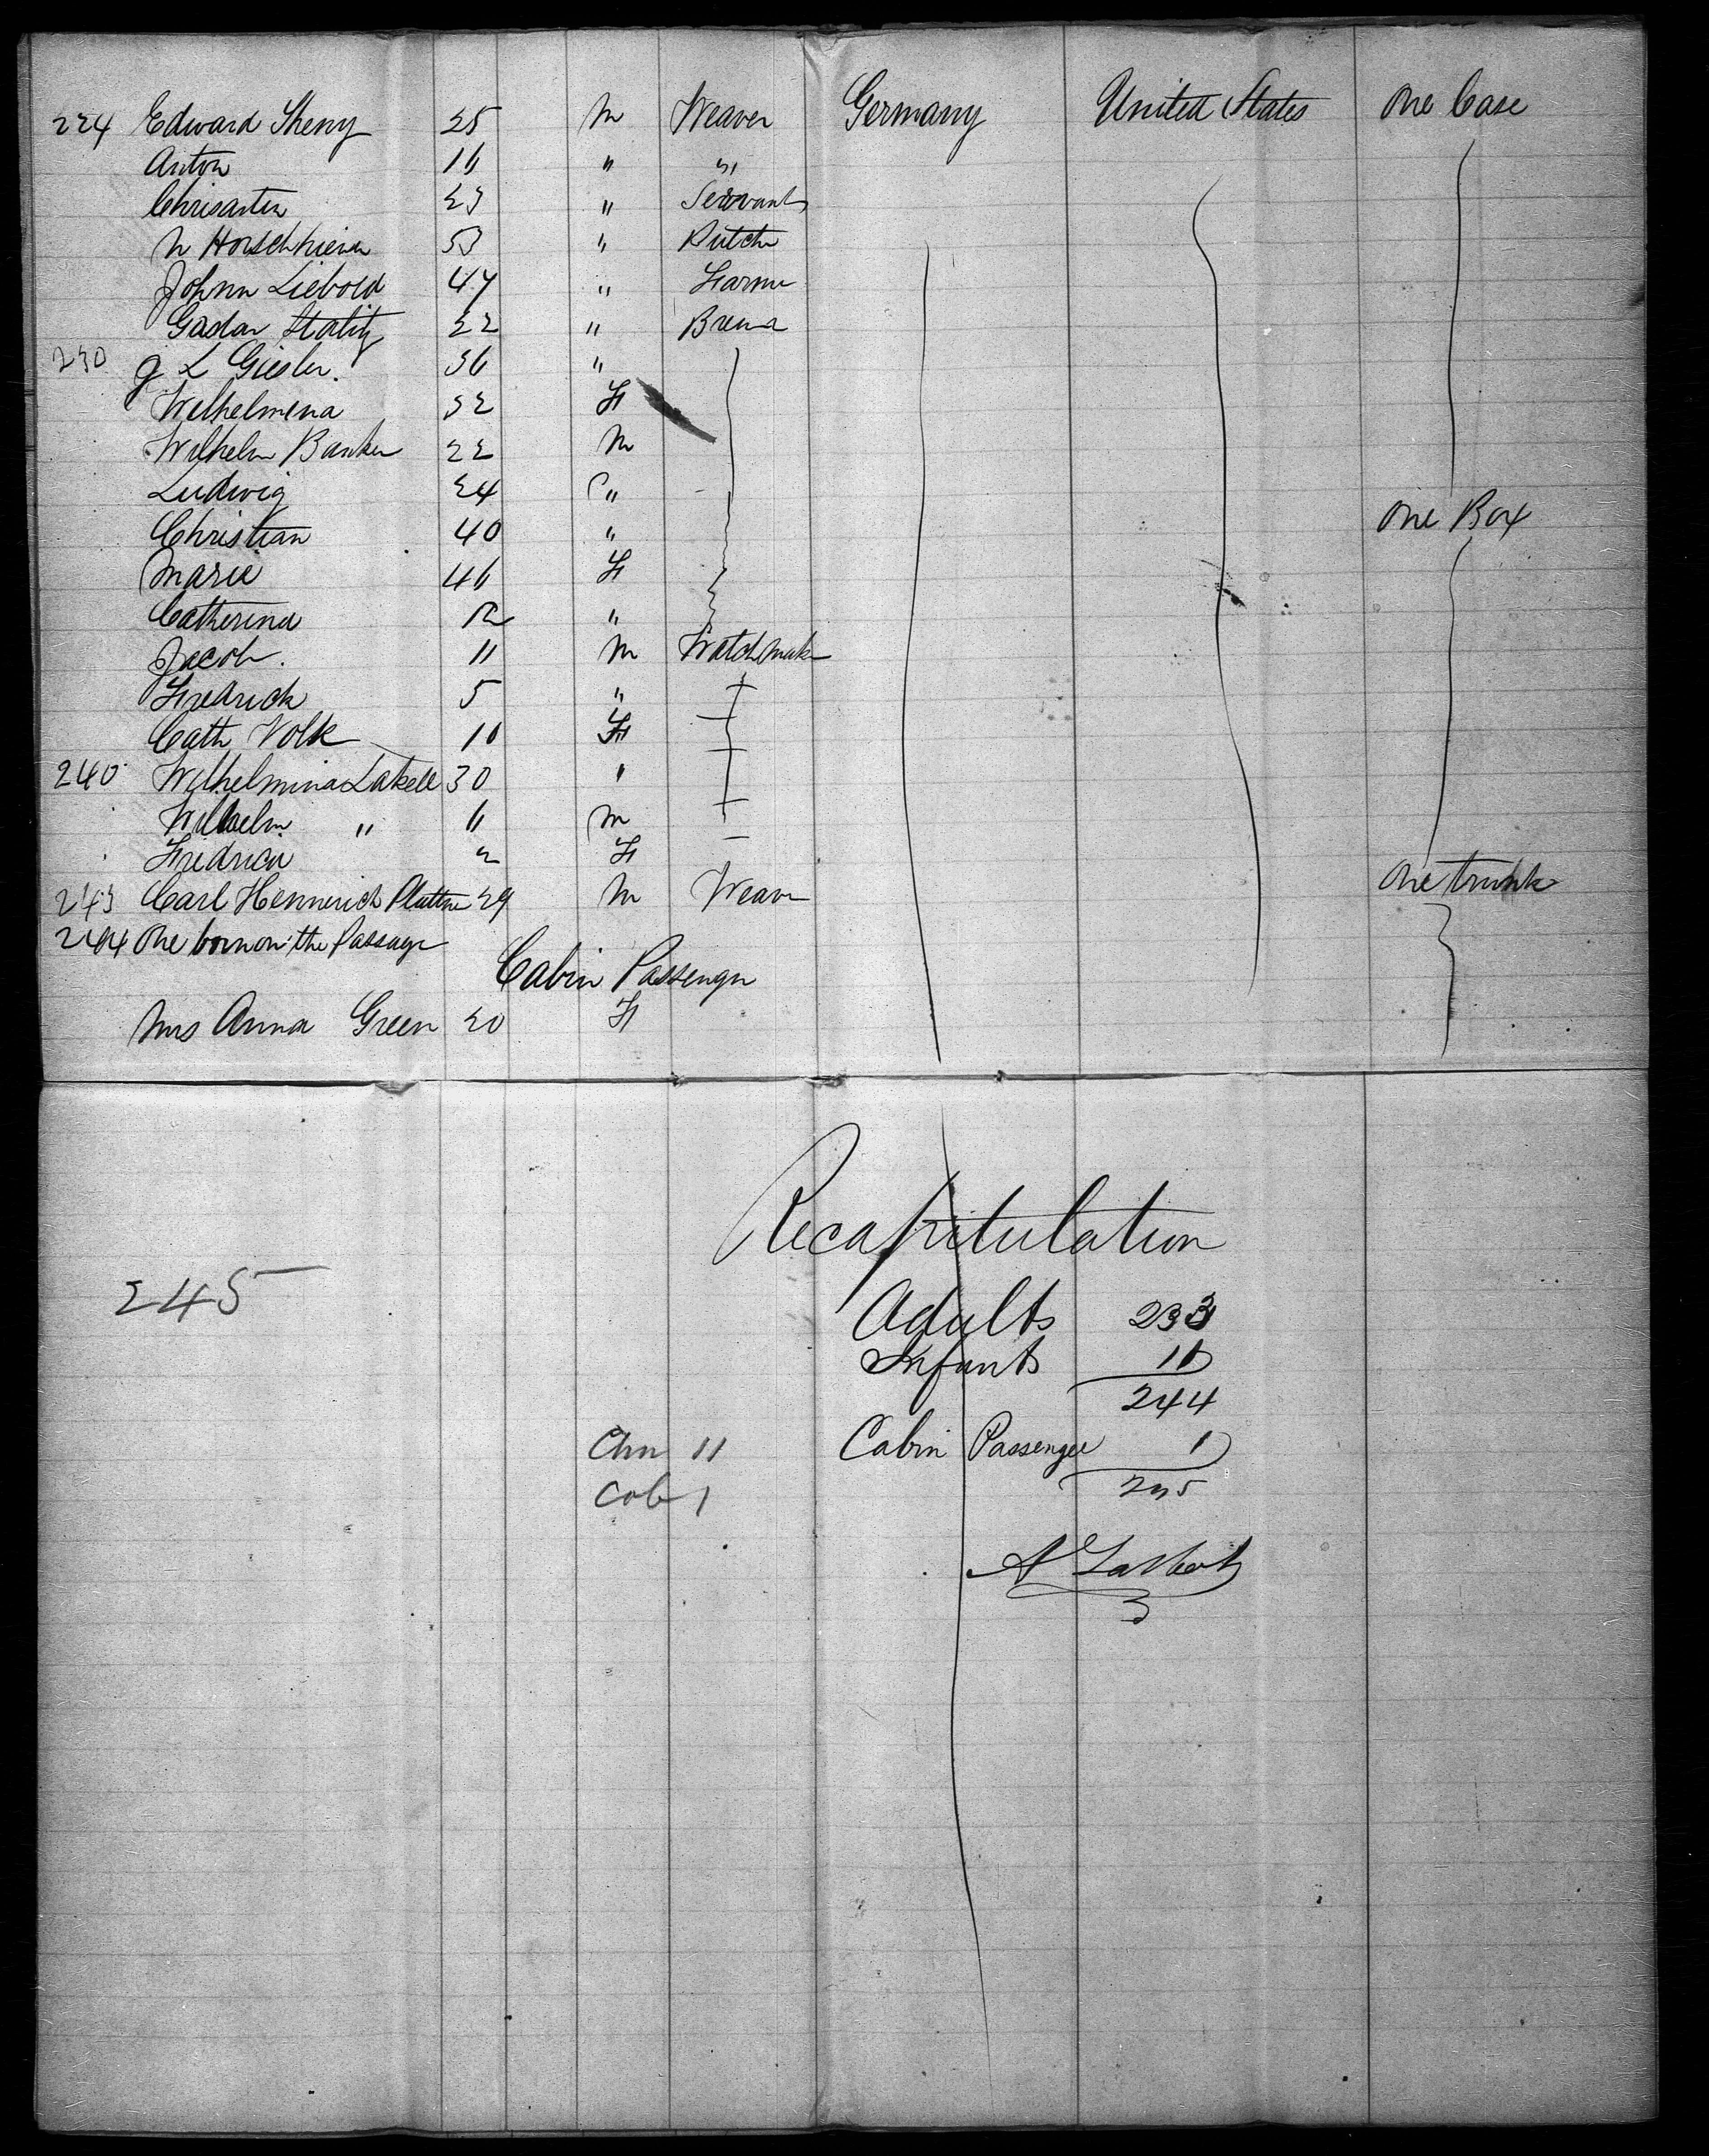 224 Edward Sherry 25 m Weaver Germany United States One Case
Anton 16 " "
23 " Servant
53 " Butche
Johnn Liebold 47 " Farme
22 "
230 g L Giesler. 36 "
Wilhelmena 32 F
Wilhelm Banker 22 m
Ludwig 24 "
Christian 40 " One Box
Marie 46 F
Catherina 12 "
Jacob. 11 m Watchmake
Fredrick 5 "
Cath Volk 10 F
240 Wilhelmina Lakell 30 "
Wilhelm " 11 m
Fredrica 2 F
243 Carl Hennerich Plattne 29 m Weave One trunk
244 One born on the Passage
Cabin Passenger
Mrs Anna Green 20 F
Recapitulation
245
Adults 233
Infants 11
244
Chn 11 Cabin Passenger 1
Cab 1 245